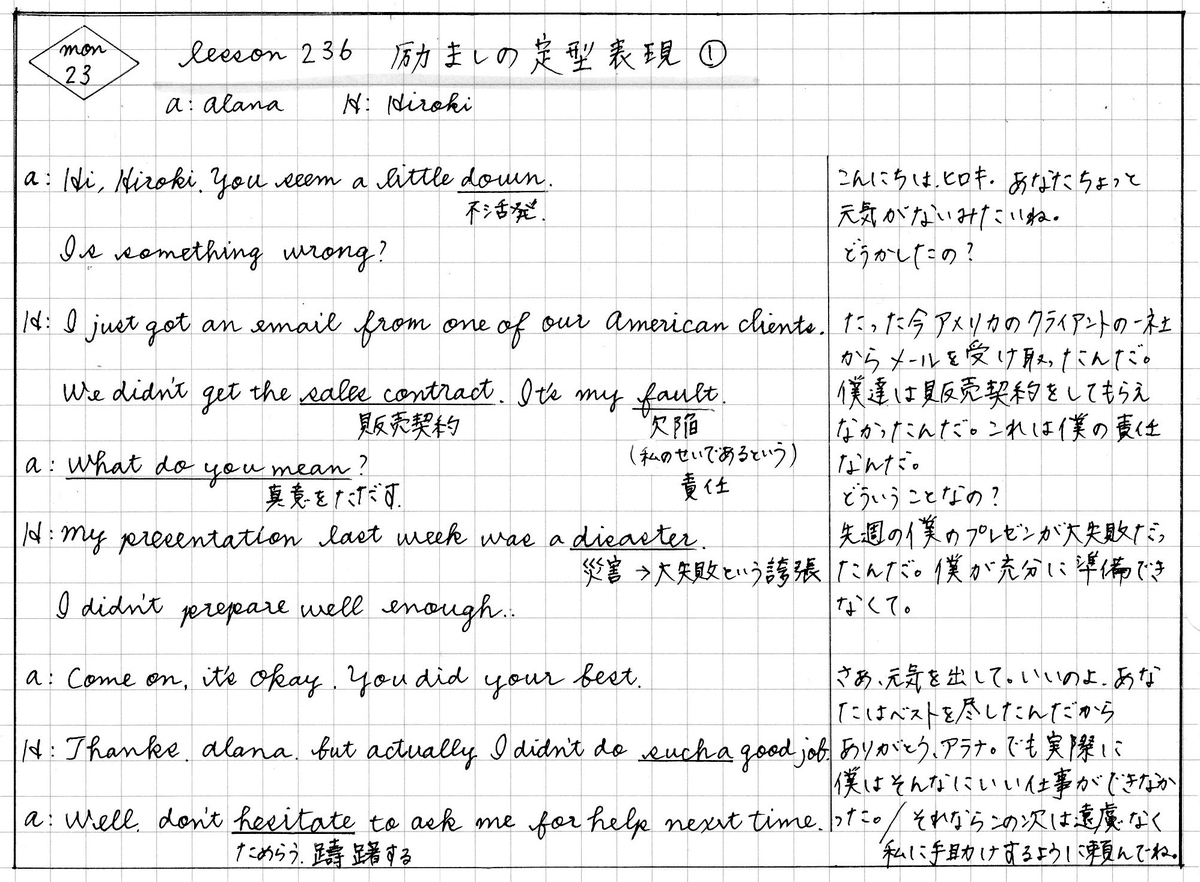 mon
23
lesson 236 励ましの定型表現 ①
a: alana H: Hiroki
a: Hi, Hiroki. You seem a little down.
不活発.
Is something wrong?
こんにちは、ヒロキ. あなたちょっと
元気がないみたいね。
どうかしたの?
H: I just got an email from one of our American clients.
We didn't get the sales contract. It's my fault.
販売契約
欠陥
(私のせいであるという)
責任
たった今アメリカのクライアントの一社
からメールを受け取ったんだ。
僕達は販売契約をしてもらえ
なかったんだ。これは僕の責任
なんだ。
a: What do you mean?
真意をただす.
どういうことなの?
H: My presentation last week was a disaster.
災害 → 大失敗という誇張
I didn't prepare well enough..
先週の僕のプレゼンが大失敗だっ
たんだ。僕が充分に準備でき
なくて。
a: Come on, it's okay. You did your best.
さあ、元気を出して。いいのよ. あな
たはベストを尽したんだから
H: Thanks, alana. but actually I didn't do such a good job.
ありがとう、アラナ。でも実際に
僕はそんなにいい仕事ができなか
った。/ それならこの次は遠慮なく
私に手助けするように頼んでね。
a: Well, don't hesitate to ask me for help next time.
ためらう. 躊躇する